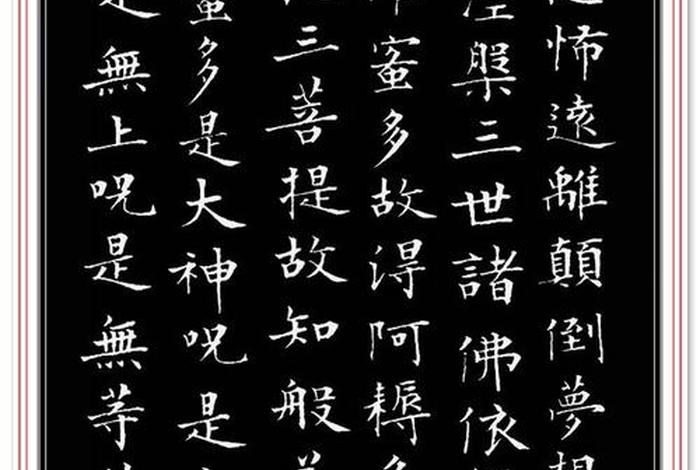 怖遠離顛倒夢想
涅槃三世諸佛依
蜜多故得阿耨多
三菩提故知般
蜜多是大神呪是
是無上呪是無等